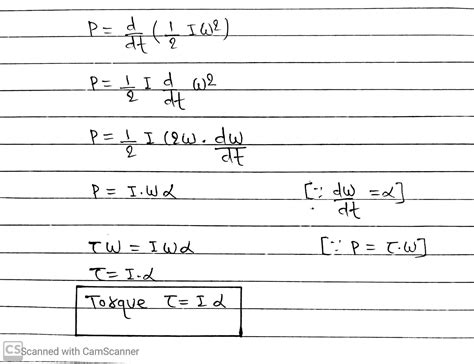 P = d/dt (1/2 Iω²)
P = 1/2 I d/dt ω²
P = 1/2 I (2ω · dω/dt
P = I.ωα [∵ dω/dt = α]
τω = Iωα [∵ P = τ.ω]
τ = I.α
Torque τ = Iα
CS Scanned with CamScanner